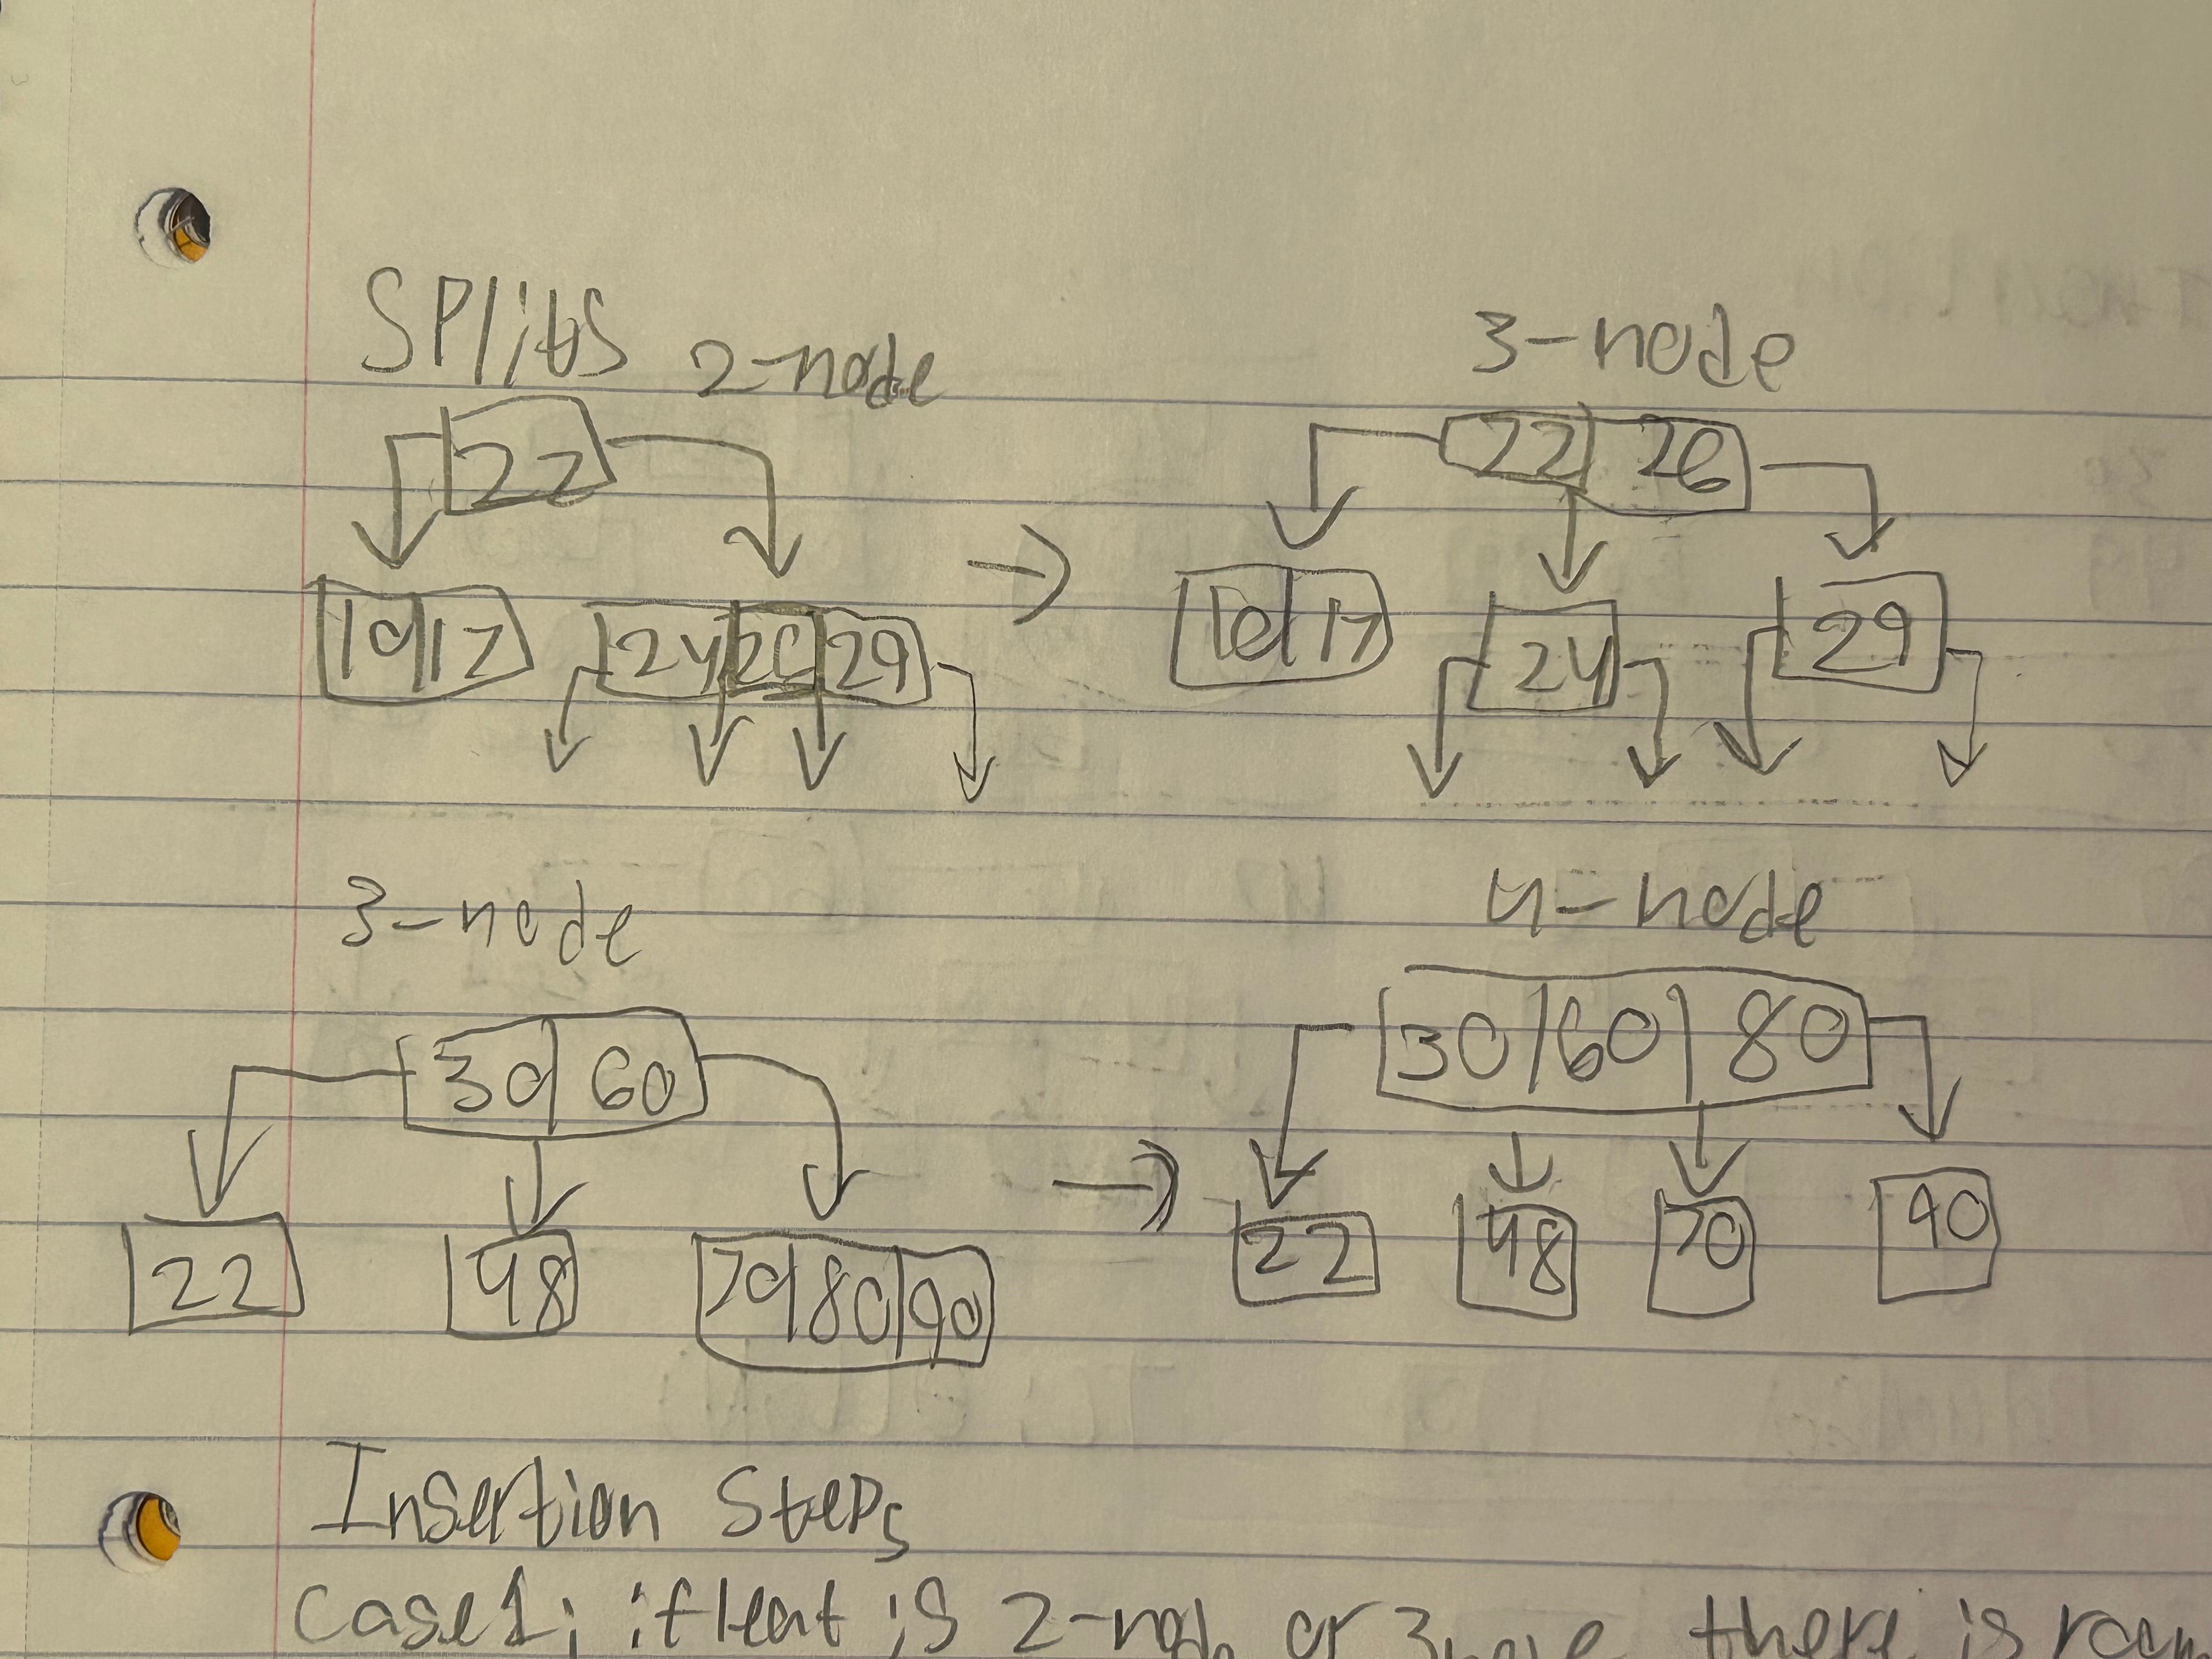 Splits 2-node 3-node
22 22 26
→
10 17 24 26 29 10 17 24 29
3-node 4-node
30 60 30 60 80
→
22 48 70 80 90 22 48 70 90
Insertion Steps
Case 1: if leaf is 2-node or there is room